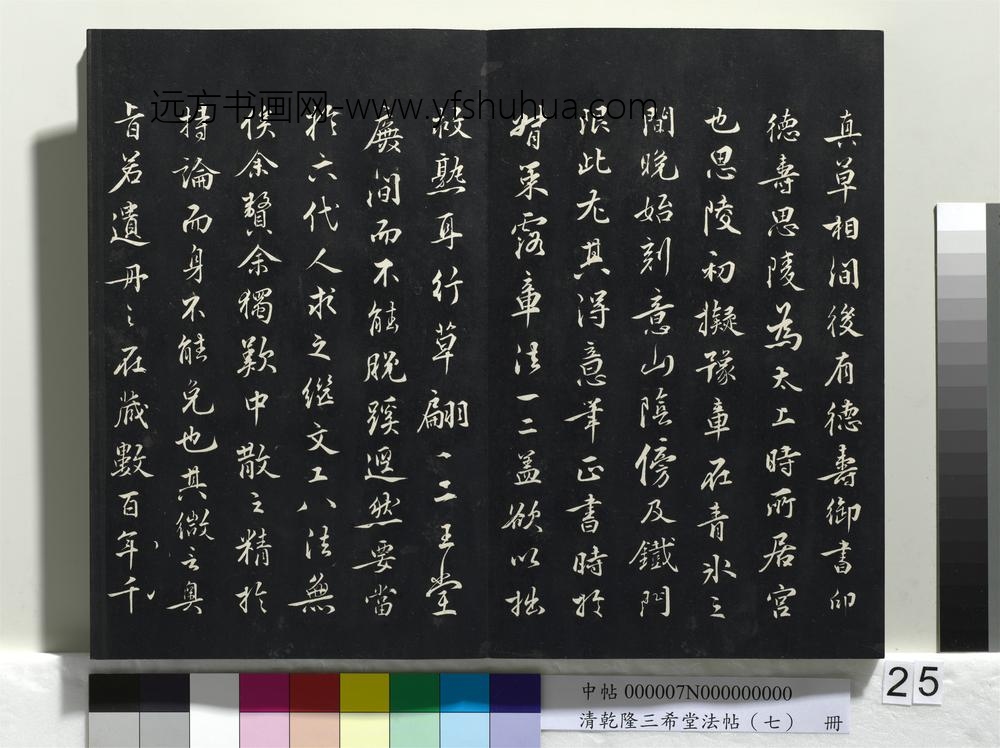 真草相間後有德壽御書印
德壽思陵為太上時所居宮
也思陵初擬豫章在青氷之
間晚始刻意山陰傍及鐵門
限此尤其得意筆正書時於
督策露章法一二盖欲以拙
救熟耳行草翩〻二王堂
廡间而不能脱蹊逕然要當
於六代人求之继文工八法無
俟余贊余獨歎中散之精於
持論而身不能免也其微言奥
旨若遺丹〻在藏數百年千
远方书画网-www.yfshuhua.com
25
中帖 000007N000000000
清乾隆三希堂法帖（七） 冊